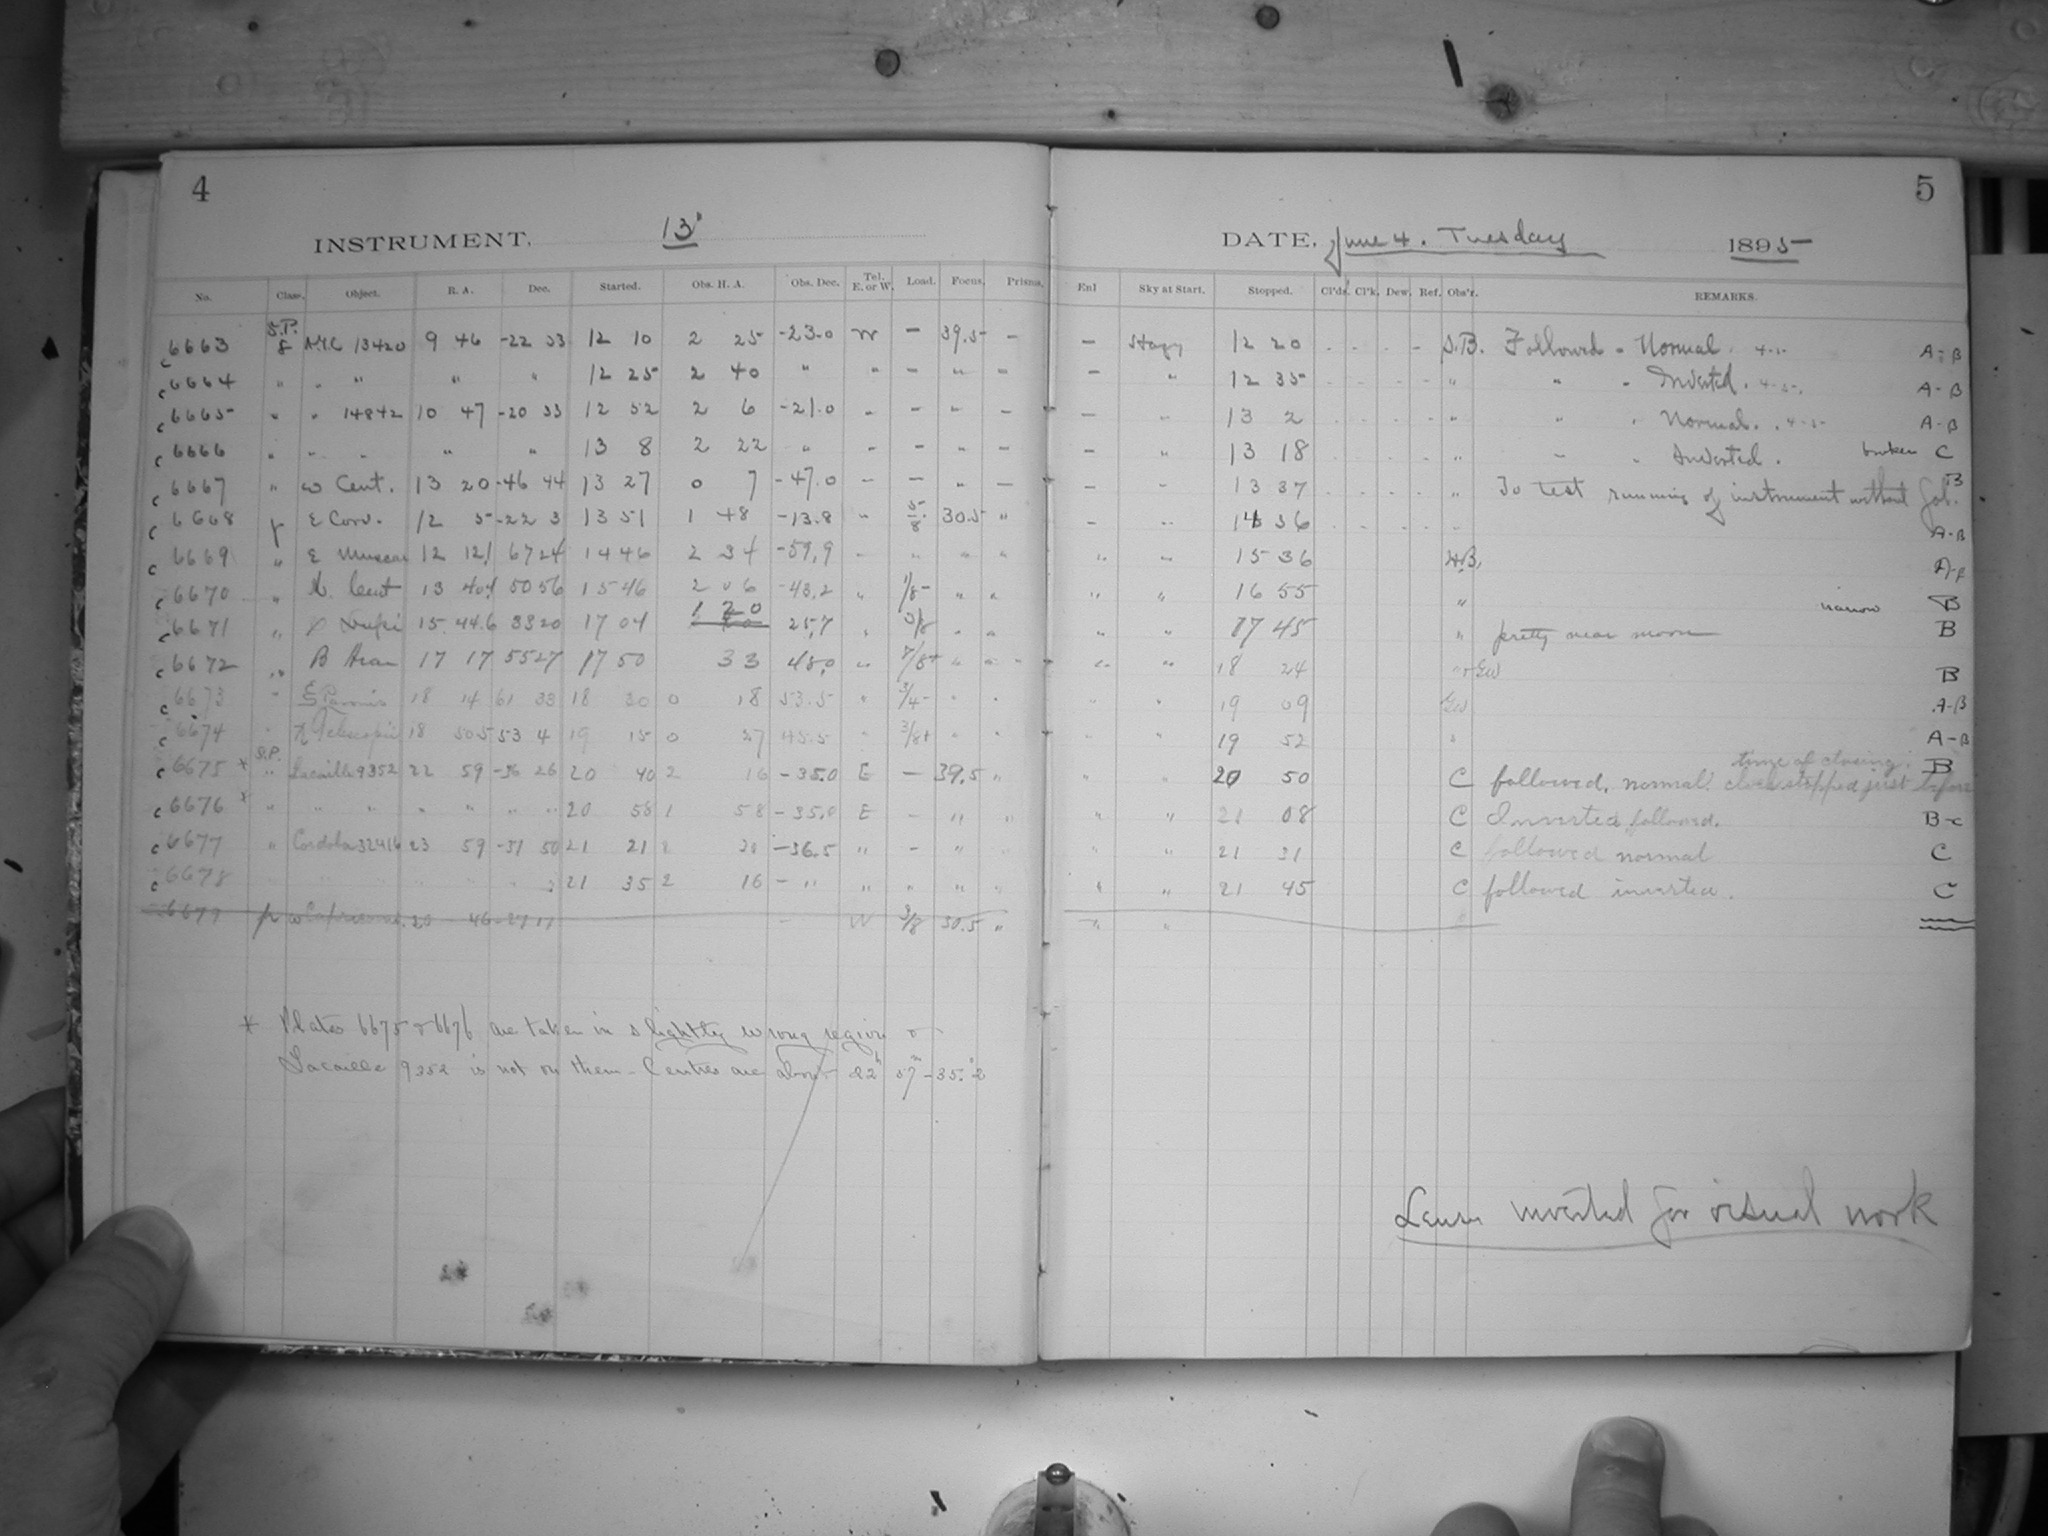 4
INSTRUMENT, 13"
No. Class. Object. R. A. Dec. Started. Obs. H. A. Obs. Dec. Tel. E. or W. Load. Focus. Prisms.
c6663 S.P. 8 A.G.C. 13420 9 46 -22 33 12 10 2 25 -23.0 W - 39.5 -
c6664 " " " " " 12 25 2 40 " " - " "
c6665 " " 14842 10 47 -20 33 12 52 2 6 -21.0 " - " -
c6666 " " " " " 13 8 2 22 " " - " -
c6667 " ω Cent. 13 20 -46 44 13 27 0 7 -47.0 - - " -
c6668 p ε Corv. 12 5 -22 3 13 51 1 48 -13.8 " 5/8 30.5 "
c6669 " ε Muscae 12 12.1 67 24 14 46 2 34 -59.9 " " " "
c6670 " Cent 13 40.4 50 56 15 46 2 06 -43.2 " 1/8- " "
c6671 " χ Lupi 15 44.6 33 20 17 04 1 20 25.7 " 3/8 " "
c6672 " β Arae 17 17 55 27 17 50 33 48.0 " 7/8+ " "
c6673 " ξ Pavonis 18 14 61 33 18 30 0 18 53.5 " 3/4- " "
c6674 " Telescopii 18 50.5 53 4 19 15 0 27 45.5 " 3/8+ " "
c6675 * S.P. " Lacaille 9352 22 59 -36 26 20 40 2 16 -35.0 E - 39.5 "
c6676 * " " " " " " " 20 58 1 58 -35.0 E - " "
c6677 " Cordoba 32416 23 59 -37 50 21 21 2 30 -36.5 " - " "
c6678 21 35 2 16 - " " " " "
6679 p ω Capricorni. 20 46 -27 17 - W 3/8 30.5 "
* Plates 6675 & 6676 are taken in slightly wrong region &
Lacaille 9352 is not on them - Centres are about 22h 57m -35.°2
5
DATE, June 4. Tuesday 1895
Enl Sky at Start. Stopped. Cl'ds. Cl'k. Dew. Ref. Obs'r. REMARKS.
- Hazy 12 20 - - - - S.B. Followed - Normal. 4-5- A-B
- " 12 35 - - - - " " - Inverted. 4-5-. A-B
- " 13 2 - - - - " " " Normal. 4-5- A-B
- " 13 18 - - - - " - " Inverted. broken C
- - 13 37 - - - - " To test running of instrument without fol. B
- " 14 36 - - - - " A-B
" " 15 36 H.B. A-B
" " 16 55 " narrow B
" " 17 45 " pretty near moon B
" " 18 24 " + GW B
" " 19 09 GW A-B
" " 19 52 " A-B
" " 20 50 C followed, normal. clock stopped just before time of closing. B
" " 21 08 C Inverted followed. B-C
" " 21 31 C followed normal C
" " 21 45 C followed inverted. C
" "
Lens inverted for visual work